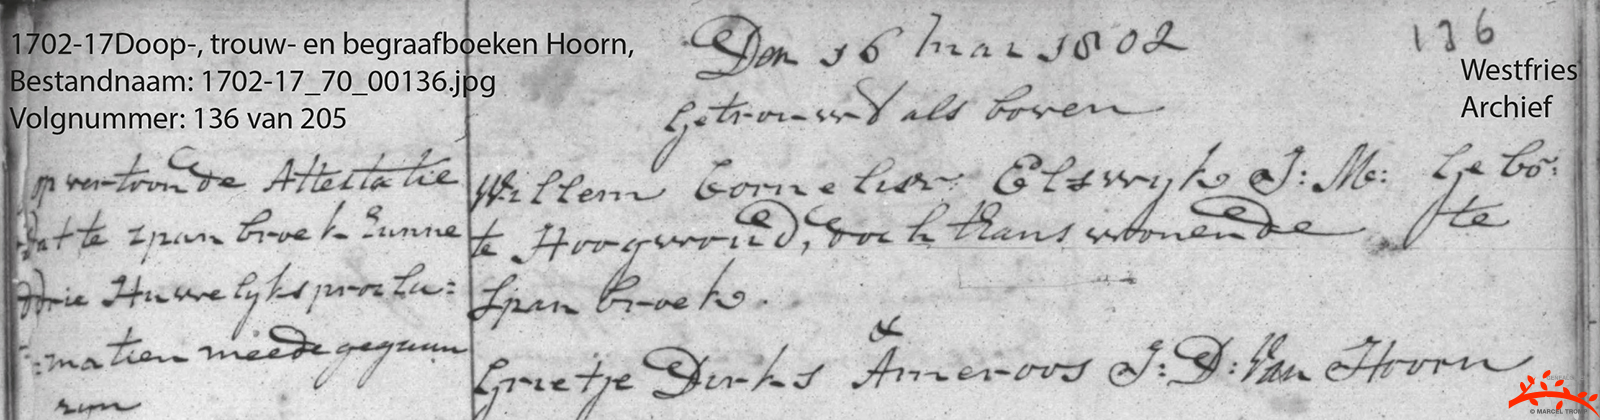 1702-17Doop-, trouw- en begraafboeken Hoorn,
Bestandnaam: 1702-17_70_00136.jpg
Volgnummer: 136 van 205
136
Westfries
Archief
Den 16 Mai 1802
Getrouwd als boven
op vertoonde Attestatie
dat te Spanbroek hunne
drie Huwelyks procla:
:matien meede gegaan
zyn
Willem Cornelisz: Elswyk J: M: Gebō:
te Hoogwoud, doch thans woonende te
Spanbroek.
&
Grietje Dirks Ameroos J: D: Van Hoorn
© MARCEL TROMP